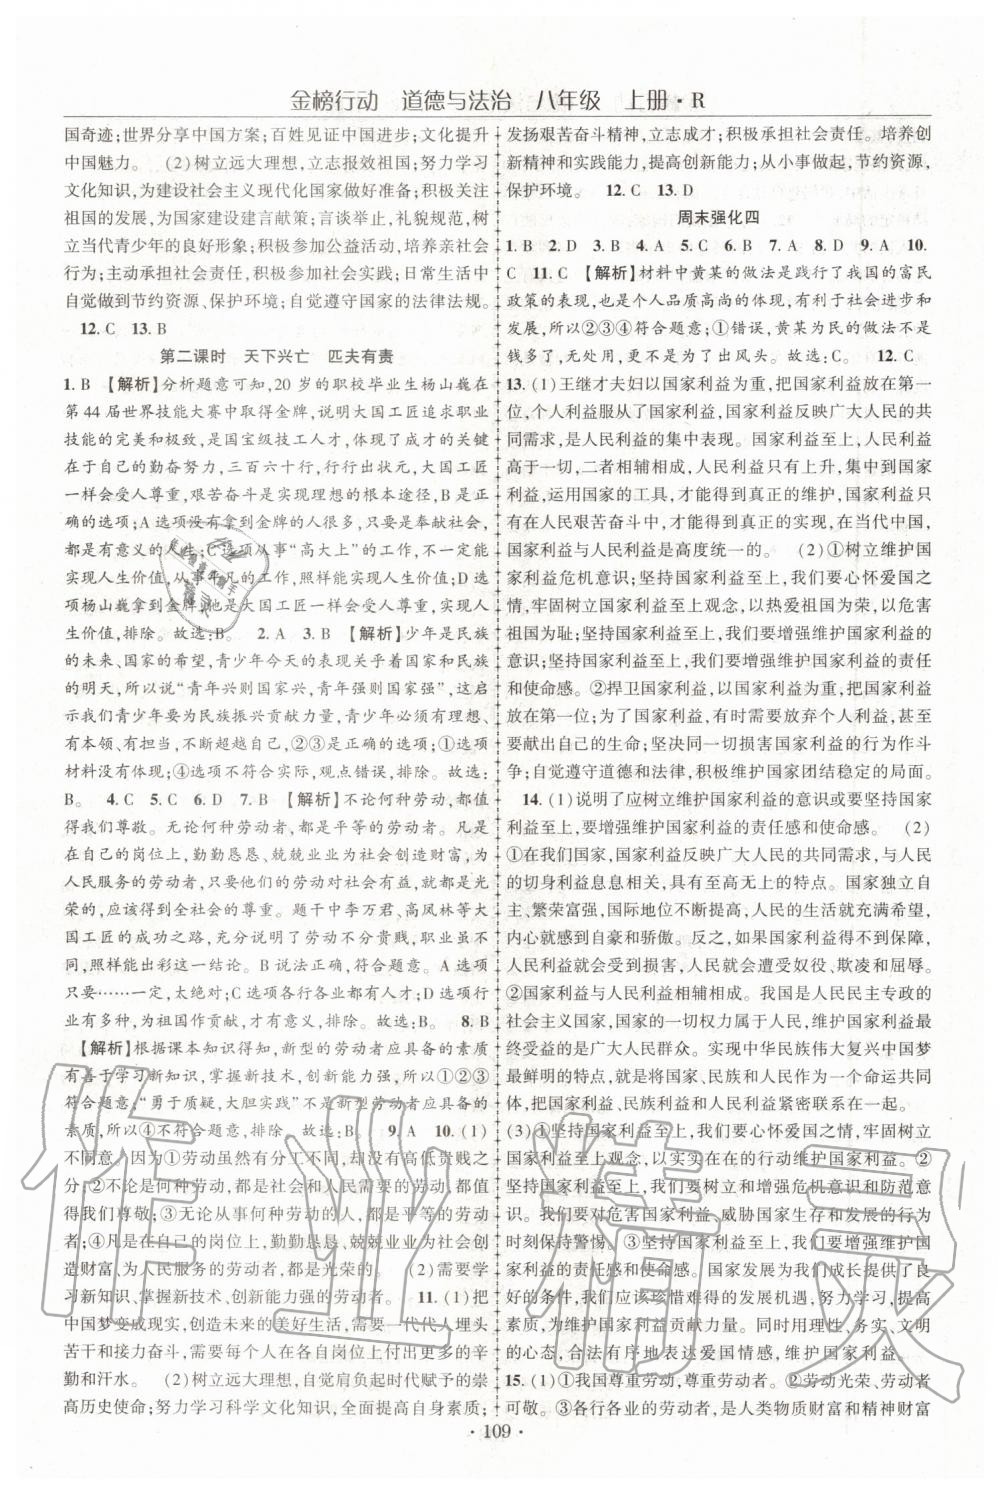 金榜行动　道德与法治　八年级　上册·R
国奇迹;世界分享中国方案;百姓见证中国进步;文化提升
中国魅力。　(2)树立远大理想,立志报效祖国;努力学习
文化知识,为建设社会主义现代化国家做好准备;积极关注
祖国的发展,为国家建设建言献策;言谈举止,礼貌规范,树
立当代青少年的良好形象;积极参加公益活动,培养亲社会
行为;主动承担社会责任,积极参加社会实践;日常生活中
自觉做到节约资源、保护环境;自觉遵守国家的法律法规。
12. C　13. B
第二课时　天下兴亡　匹夫有责
1. B　【解析】分析题意可知,20 岁的职校毕业生杨山巍在
第 44 届世界技能大赛中取得金牌,说明大国工匠追求职业
技能的完美和极致,是国宝级技工人才,体现了成才的关键
在于自己的勤奋努力,三百六十行,行行出状元,大国工匠
一样会受人尊重,艰苦奋斗是实现理想的根本途径,B是正
确的选项;A 选项没有拿到金牌的人很多,只要是奉献社会,
都是有意义的人生;C 选项从事“高大上”的工作,不一定能
实现人生价值,从事平凡的工作,照样能实现人生价值;D 选
项杨山巍拿到金牌,他是大国工匠一样会受人尊重,实现人
生价值,排除。故选:B。　2. A　3. B　【解析】少年是民族
的未来、国家的希望,青少年今天的表现关乎着国家和民族
的明天,所以说“青年兴则国家兴,青年强则国家强”,这启
示我们青少年要为民族振兴贡献力量,青少年必须有理想、
有本领、有担当,不断超越自己,②③是正确的选项;①选项
材料没有体现;④选项不符合实际,观点错误,排除。故选:
B。　4. C　5. C　6. D　7. B　【解析】不论何种劳动,都值
得我们尊敬。无论何种劳动者,都是平等的劳动者。凡是
在自己的岗位上,勤勤恳恳、兢兢业业为社会创造财富,为
人民服务的劳动者,只要是劳动对社会有益,就是无尚光
荣的,应该得到全社会的尊重。题干中李万君、高凤林等大
国工匠的成功之路,充分说明了劳动不分贵贱,职业虽不
同,照样能有这一结论。B 说法正确,符合题意。A 选项
只要……一定,太绝对;C 选项各行各业都有人才;D 选项行
业有多种,为祖国作贡献,才有意义,排除。故选:B。　8. B
【解析】根据课本知识得知,新型的劳动者应具备的素质
有善于学习新知识,掌握新技术,掌握新技能,所以①②③
符合题意,“勇于质疑,大胆实践”不是新型劳动者应具备的
素质,所以④不符合题意,排除。故选:B。　9. A　10. (1)
不同意。因为①劳动虽然有分工不同,却没有高低贵贱之
分;②不论是何种劳动,都是社会和人民需要的劳动,都值
得尊敬;③无论从事何种劳动的劳动者,都是平等的劳动
者。④凡是在自己的岗位上,勤勤恳恳、兢兢业业为社会创
造财富,为人民服务的劳动者,都是光荣的。　(2)需要学
习新知识、掌握新技术、创新能力强的劳动者。　11. (1)把
中国梦变成现实,创造未来的美好生活,需要一代代人埋头
苦干和接力奋斗,需要每个人在各自岗位上付出更多的辛
勤和汗水。　(2)树立远大理想,自觉肩负起时代赋予的崇
高历史使命;努力学习科学文化知识,努力提高自身素质;
发扬艰苦奋斗精神,立志成才;积极承担社会责任。培养创
新精神和实践能力,提高创新能力;从小事做起,节约资源,
保护环境。　12. C　13. D
周末强化四
1. B　2. D　3. B　4. A　5. C　6. B　7. A　8. D　9. A　10.
C　11. C　【解析】材料中黄某的做法是践行了我国的富民
政策的表现,也是个人品质高尚的体现,有利于社会进步和
发展,所以②③④符合题意;①错误,黄某为民的做法不是
钱多了,无处用,更不是无目的的表现。故选:C。　12. C
13. (1)王继才夫妇以国家利益为重,把国家利益放在第一
位,个人利益服从了国家利益,国家利益反映广大人民的共
同需求,是人民利益的集中表现。国家利益至上,人民利益
高于一切,二者相辅相成,人民利益只有上升,集中到国家
利益,运用国家的工具,才能得到真正的维护,国家利益只
有在人民艰苦奋斗中,才能得到真正的实现,在当代中国,
国家利益与人民利益是高度统一的。　(2)①树立维护国
家利益危机意识;坚持国家利益至上,我们要心怀爱国之
情,牢固树立国家利益至上观念,以热爱祖国为荣,以危害
祖国为耻;坚持国家利益至上,我们要增强维护国家利益的
意识;坚持国家利益至上,我们要增强维护国家利益的责任
和使命感。②捍卫国家利益,坚持国家利益至上,把国家利
益放在第一位;为了国家利益,有时需要放弃个人利益,甚至
要献出自己的生命;要同一切损害国家利益的行为作斗
争;自觉遵守道德和法律,积极维护国家团结稳定的局面。
14. (1)说明了应树立维护国家利益的意识或要坚持国家利
益至上,要增强维护国家利益的责任感和使命感。　(2)
①在我们国家,国家利益反映广大人民的共同需求,与人民
的切身利益息息相关,具有至高无上的特点。国家独立自
主、繁荣富强,国际地位不断提升,我们的生活就充满希望,
内心就感到自豪和骄傲。反之,如果国家利益得不到保障,
人民就会受到损害,人民甚至会遭受奴役、欺凌和屈辱。
②国家利益与人民利益相辅相成。我国是人民民主专政的
社会主义国家,国家的一切权力属于人民,维护国家利益最
终受益的是广大人民群众。实现中华民族伟大复兴中国梦
最鲜明的特点,就是将国家、民族和人民作为一个命运共同
体,把国家利益、民族利益和人民利益紧密联系在一起。
(3)①坚持国家利益至上,要心怀爱国之情,牢固树立国家
利益至上的观念,以实实在在的行动维护国家利益。②
坚持国家利益至上,我们要树立和增强危机意识和防范意
识。我们要对危害国家利益、威胁国家生存和发展的行为
保持警惕。③坚持国家利益至上,我们要增强维护国家利益
的责任感和使命感。国家发展为我们成长提供了良
好的条件,我们应该珍惜难得的发展机遇,努力学习,提高
素质,为维护国家利益贡献力量。同时用理性、务实、文明
的方式,合法有序地表达爱国情感,维护国家利益。
15. (1)①我国尊重劳动,尊重劳动者。②劳动光荣、劳动者
可敬。③各行各业的劳动者,是人类物质财富和精神财富
· 109 ·
作业精灵